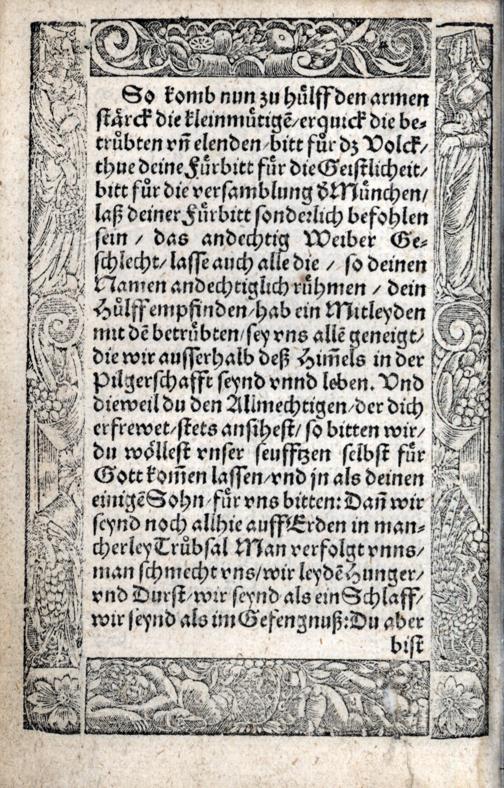 So komb nun zu huͤlff den armen
staͤrck die kleinmuͤtigẽ / erquick die be-
truͤbten vñ elenden / bitt fuͤr dz Volck /
thue deine Fuͤrbitt fuͤr die Geistlicheit /
bitt fuͤr die versamblung đ Muͤnchen /
laß deiner Fuͤrbitt sonderlich befohlen
sein / das andechtig Weiber Ge-
schlecht / lasse auch alle die / so deinen
Namen andechtiglich ruͤhmen / dein
Huͤlff empfinden / hab ein Mitleyden
mit dẽ betruͤbten / sey vns allẽ geneigt /
die wir ausserhalb deß Him̃els in der
Pilgerschafft seynd vnnd leben. Vnd
dieweil du den Allmechtigen / der dich
erfrewet / stets ansihest / so bitten wir /
du woͤllest vnser seufftzen selbst fuͤr
Gott kom̃en lassen / vnd jn als deinen
einigẽ Sohn fuͤr vns bitten: Dañ wir
seynd noch allhie auff Erden in man-
cherley Truͤbsal Man verfolgt vnns /
man schmecht vns / wir leydẽ Hunger /
vnd Durst / wir seynd als ein Schlaff /
wir seynd als im Gefengnuß: Du aber
bist